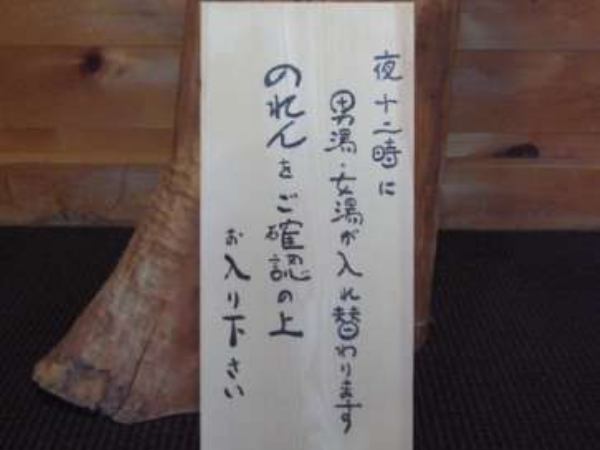 夜十二時に
男湯・女湯が入れ替わります
のれんをご確認の上
お入り下さい